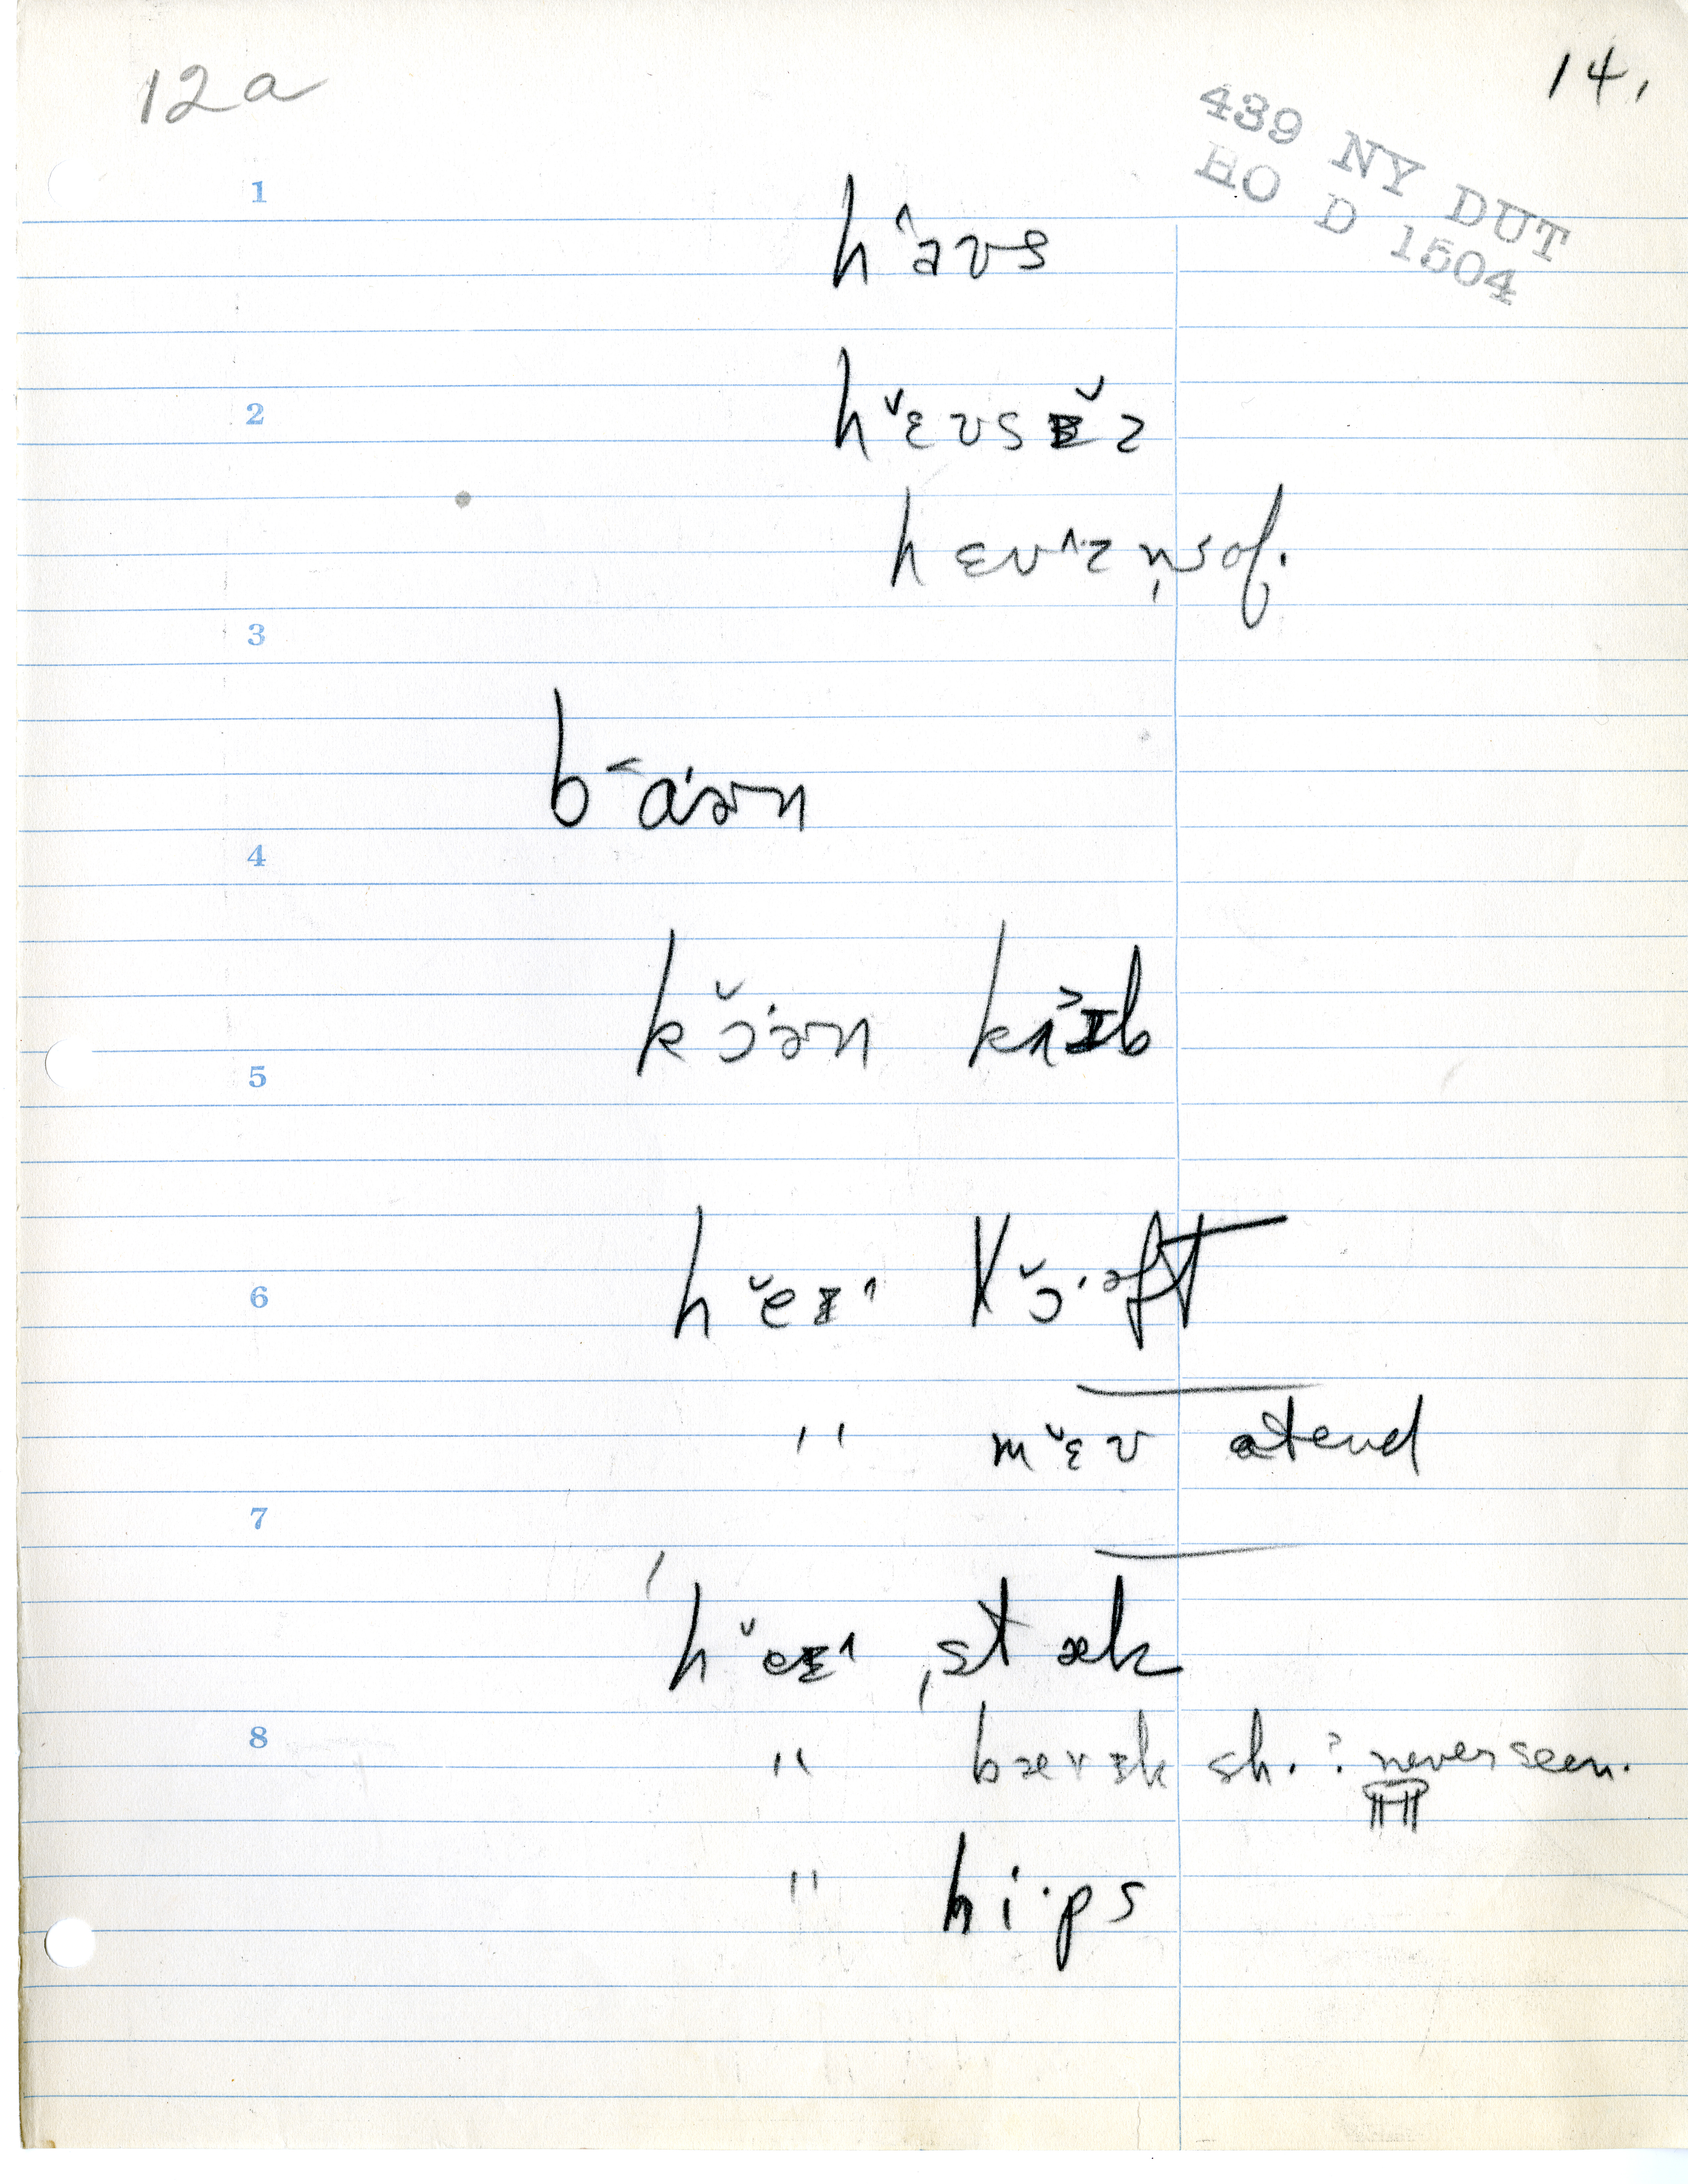 12a
14.
439 NY DUT
HO D 1504
1
h^əʊs
2
hˇɛʊsɪˇz
hɛʊ^zn̩sof.
3
b˂ɑˑən
4
kˇɔˑən krɪb
5
6
hˇeɪ^ lˇɔˑəft
" mˇɛʊ atend
7
hˇeɪ^ ˌstæk
8
" bærɪk sh. ? never seen.
" hiˑps